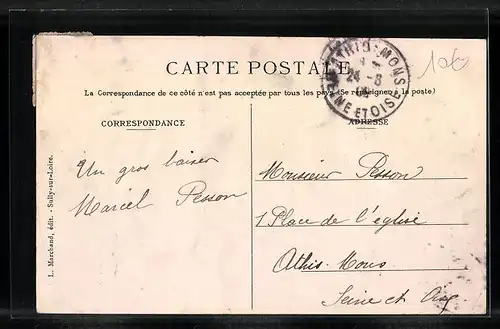 CARTE POSTALE
La Correspondance de ce côté n'est pas acceptée par tous les pays (Se renseigner à la poste)
CORRESPONDANCE
ADRESSE
ATHIS-MONS
24-8
SEINE ET OISE
Un gros baiser
Marcel Pesson
Monsieur Pesson
1 Place de l'eglise
Athis-Mons
Seine et Oise
L. Marchand, édit. - Sully-sur-Loire.